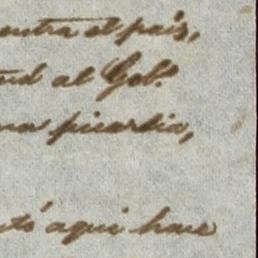 entra el país,
tud al Gob.º
una picardia,
aqui hace